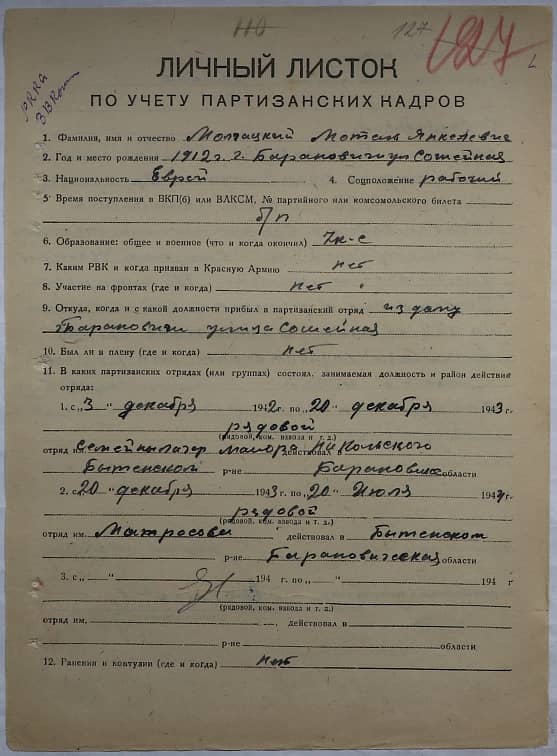 110
127
127
ЛИЧНЫЙ ЛИСТОК
ПО УЧЕТУ ПАРТИЗАНСКИХ КАДРОВ
1. Фамилия, имя и отчество Молчацкий Мотель Янкелевич
2. Год и место рождения 1912 г. г. Барановичи ул Сошейная
3. Национальность Еврей 4. Соцположение рабочий
5. Время поступления в ВКП(б) или ВЛКСМ, № партийного или комсомольского билета
б/п
6. Образование: общее и военное (что и когда окончил) 7 к-с
7. Каким РВК и когда призван в Красную Армию нет
8. Участие на фронтах (где и когда) нет
9. Откуда, когда и с какой должности прибыл в партизанский отряд из дому
Барановичи улица Сошейная
10. Был ли в плену (где и когда) нет
11. В каких партизанских отрядах (или группах) состоял, занимаемая должность и район действия
отряда:
1. с „3" декабря 1942 г. по „20" декабря 1943 г.
рядовой
(рядовой, ком. взвода и т. д.)
отряд Семейны лагер майора действовал в Никольского
Бытенском р-не Барановис области
2. с „20" декабря 1943 г. по „20" Июля 1944 г.
рядовой
(рядовой, ком. взвода и т. д.)
отряд им. Матросова действовал в Бытенском
р-не Барановическая области
3. с „ " 194 г. по „ " 194 г
(рядовой, ком. взвода и т. д.)
отряд им. , действовал в
р-не области
12. Ранения и контузии (где и когда) нет